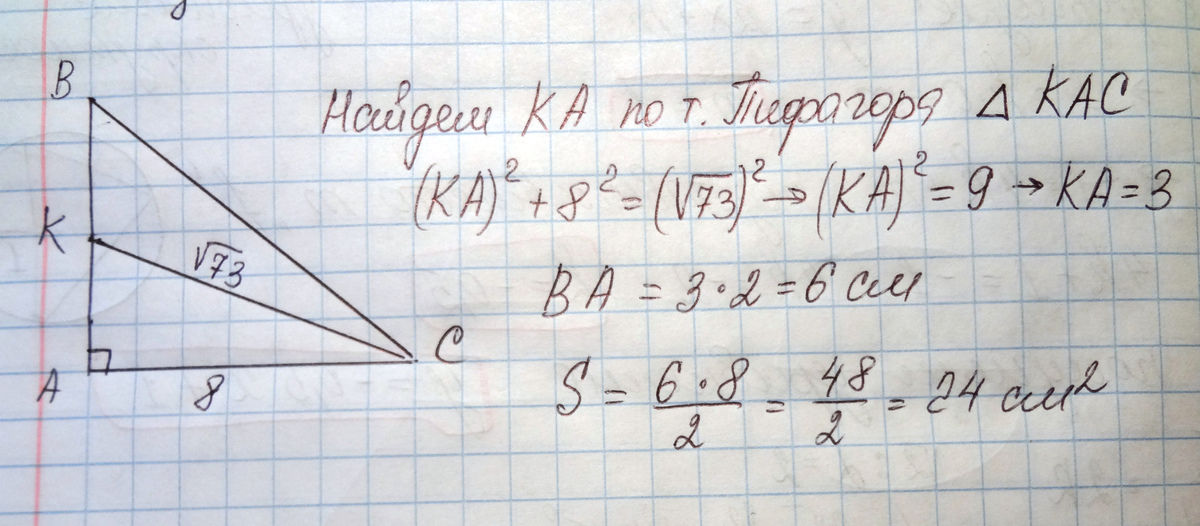 B
K
√73
A
8
C
Найдем KA по т. Пифагора Δ KAC
(KA)² + 8² = (√73)² → (KA)² = 9 → KA = 3
BA = 3 · 2 = 6 см
S = 6 · 8 / 2 = 48 / 2 = 24 см²